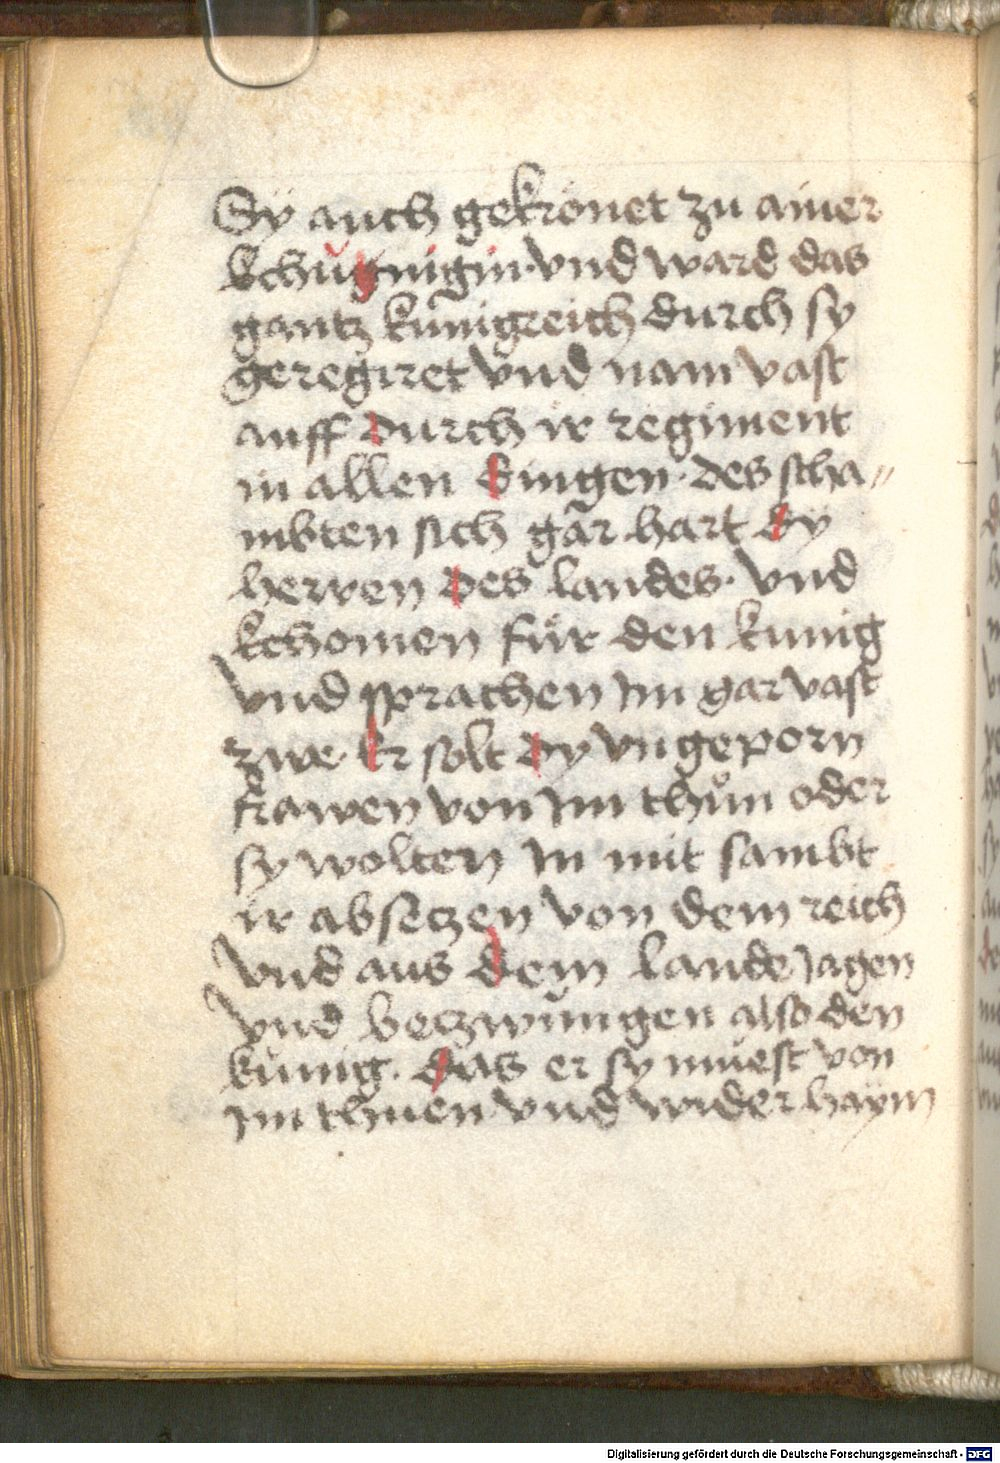 Sÿ auch gekrönet zu ainer
kchunigin vnd ward das
gantz kunigreich durch sy
geregiret vnd nam vast
auff durch ir regiment
in allen dingen des scha„
mbten sich gar hart dy
herren des landes. vnd
kchomen für den kunig
vnd sprachen im gar vast
zwe. Er solt dy vngeporn
frawen von im thuͦn oder
sy wolten in mit sambt
ir absetzen von dem reich
vnd aus dem lande jagen
vnd betzwungen also den
kunig. das er sy muest von
im thuen vnd wider haÿm
Digitalisierung gefördert durch die Deutsche Forschungsgemeinschaft - DFG